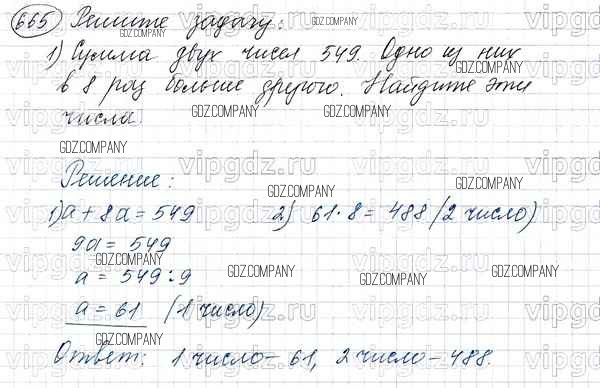 665 Решите задачу:
1) Сумма двух чисел 549. Одно из них
в 8 раз больше другого. Найдите эти
числа.
Решение:
1) a + 8a = 549   2) 61 · 8 = 488 (2 число)
9a = 549
a = 549 : 9
a = 61 (1 число)
Ответ: 1 число – 61, 2 число – 488.